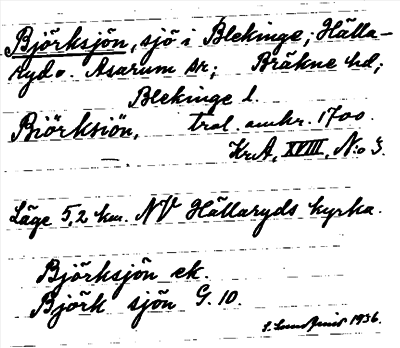 Björksjön, sjö i Blekinge; Hälla-
ryd o. Asarum sr; Bräkne hd;
Blekinge l.
Biörksiön, tral. omkr. 1700.
KrA, XVIII, N:o 3.
Läge 5,2 km. NV Hällaryds kyrka.
Björksjön ek.
Björk sjön G. 10.
1936.